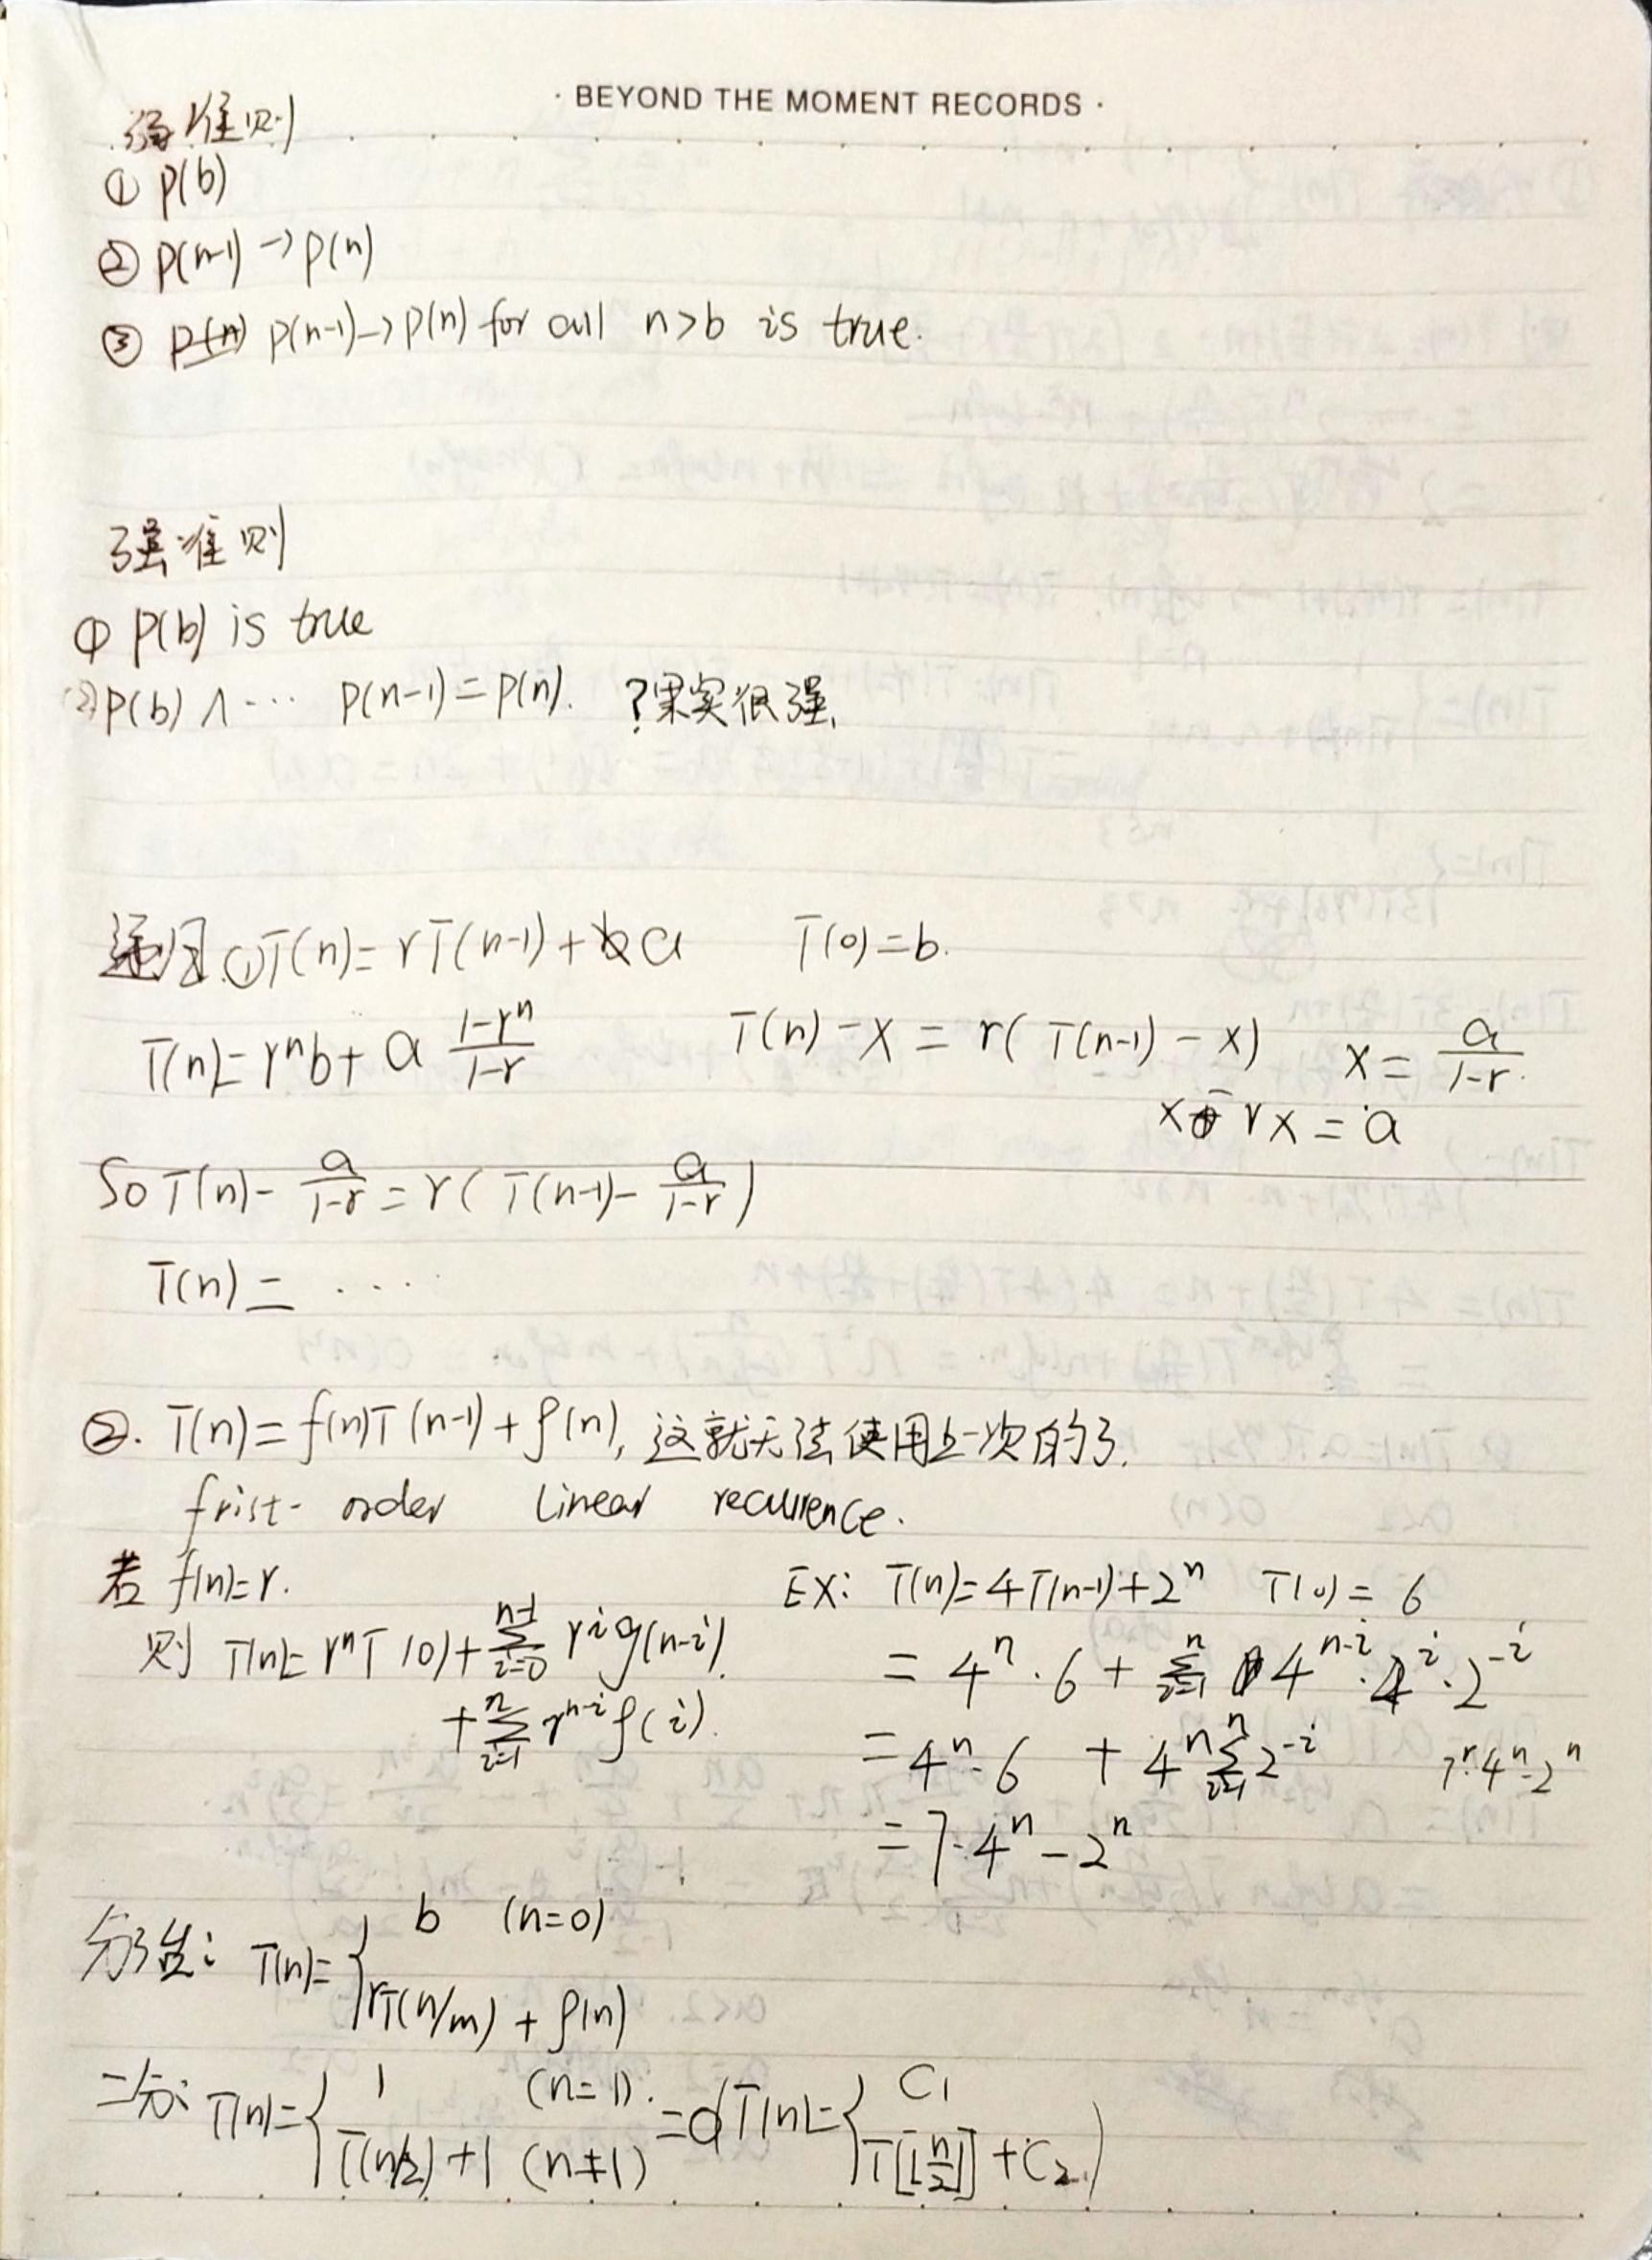 · BEYOND THE MOMENT RECORDS ·
弱准则
① p(b)
② p(n-1) → p(n)
③ p(n-1) → p(n) for all n>b is true.
强准则
① p(b) is true
② p(b) ∧ ··· p(n-1) = p(n). ?果实很强.
递归. ① T(n) = rT(n-1) + a T(0) = b.
T(n) = rⁿb + a (1-rⁿ)/(1-r) T(n) - x = r( T(n-1) - x) x = a/(1-r).
x - rx = a
So T(n) - a/(1-r) = r( T(n-1) - a/(1-r) )
T(n) = ····
②. T(n) = f(n)T(n-1) + g(n), 这就无法使用上一次的了.
frist-order linear recurrence.
若 f(n)=r. EX: T(n)=4T(n-1)+2ⁿ T(0) = 6
则 T(n)= rⁿT(0) + Σ_{i=0}^{n-1} rⁱg(n-i). = 4ⁿ·6 + Σ_{i=1}^{n} 4^{n-i}·4ⁱ·2^{-i}
+ Σ_{i=1}^{n} r^{n-i} g(i). = 4ⁿ·6 + 4ⁿ Σ_{i=1}^{n} 2^{-i} 7·4ⁿ-2ⁿ
= 7·4ⁿ - 2ⁿ
分治: T(n)= { b (n=0)
rT(n/m) + g(n)
二分: T(n)= { 1 (n=1). = O( T(n)= { C₁
T(n/2)+1 (n≠1) T[⌊n/2⌋] + C₂.)